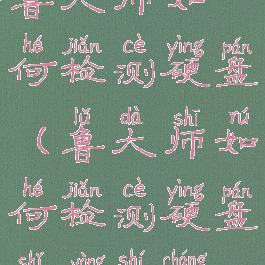 鲁大师如
hé jiǎn cè yìng pán
何检测硬盘
lǔ dà shī rú
(鲁大师如
hé jiǎn cè yìng pán
何检测硬盘
shǐ yòng shí cháng